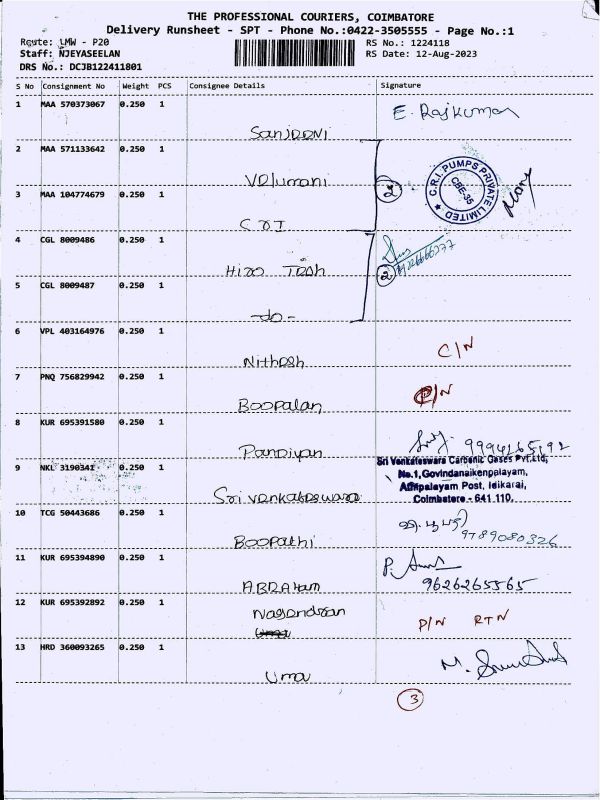 THE PROFESSIONAL COURIERS, COIMBATORE
Delivery Runsheet - SPT - Phone No.:0422-3505555 - Page No.:1
Route: LMW - P20
Staff: NJEYASEELAN
DRS No.: DCJB122411801
RS No.: 1224118
RS Date: 12-Aug-2023
S No Consignment No Weight PCS Consignee Details Signature
1 MAA 570373067 0.250 1 E. Rajkumar
2 MAA 571133642 0.250 1
Velumani
3 MAA 104774679 0.250 1
2
C.R.I. PUMPS PRIVATE LIMITED
CBE-35
CRI
4 CGL 8009486 0.250 1
2
5 CGL 8009487 0.250 1
-do-
6 VPL 403164976 0.250 1 C/N
Nithesh
7 PNQ 756829942 0.250 1 /N
Boopalan
8 KUR 695391580 0.250 1
Pandiyan
9 NKL 3190341 0.250 1
Sri Venkateswara Carbonic Gases Pvt.Ltd,
No.1,Govindanaikenpalayam,
Athipalayam Post, Idikarai,
Coimbatore - 641 110.
Sri venkateswara
10 TCG 50443686 0.250 1
9789080326
Boopathi
11 KUR 695394890 0.250 1
9626265565
ABRAham
12 KUR 695392892 0.250 1 P/N RTN
13 HRD 360093265 0.250 1
Uma
3